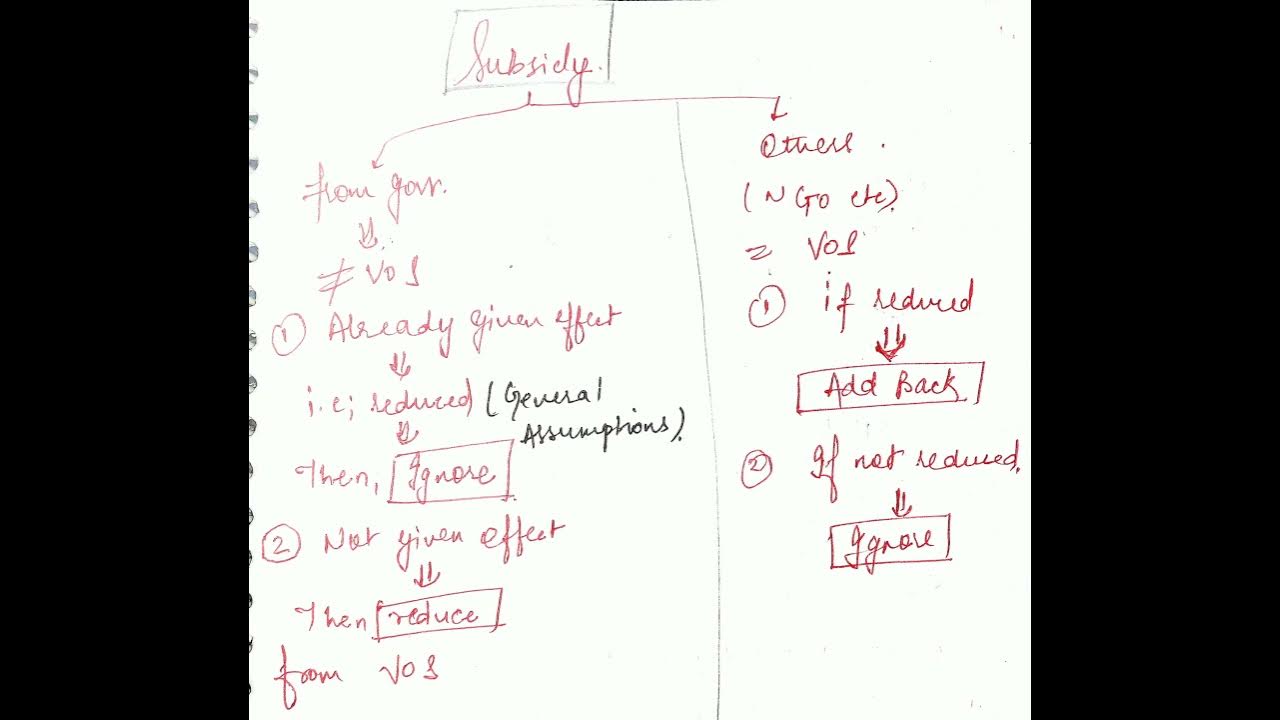 Subsidy.
from govr.
⇓
≠ VOS
① Already given effect
⇓
i.e; reduced (General
Assumptions).
⇓
Then, Ignore
② Not given effect
⇓
Then reduce
from VOS
Others.
(NGO etc).
= VOS
① if reduced
⇓
Add Back
② If not reduced.
⇓
Ignore